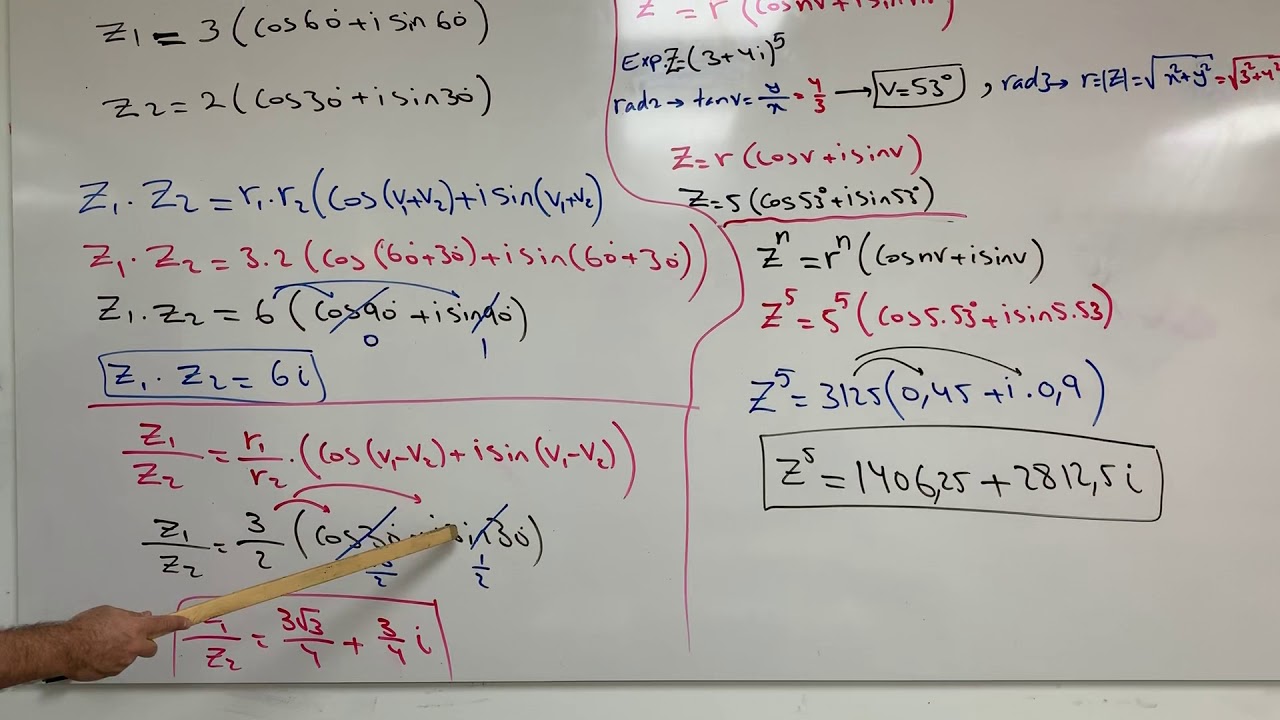 z1 = 3 (cos60° + i sin 60°)
z2 = 2 (cos30° + i sin30°)
z1 . z2 = r1 . r2 (cos(v1+v2) + i sin(v1+v2)
z1 . z2 = 3.2 (cos (60°+30°) + i sin(60°+30°))
z1 . z2 = 6 (cos90° + i sin90°)
0 1
z1 . z2 = 6i
z1/z2 = r1/r2 . (cos(v1-v2) + i sin (v1-v2))
z1/z2 = 3/2 (cos30° in 30°)
2 1/2
z2 = 3√3/4 + 3/4 i
z = r (cosnv + i sin
Exp. z=(3+4i)^5
rad2 → tanv = y/x = 4/3 → v=53° , rad3 → r=|z|=√x²+y² = √3²+4²
z = r (cosv + i sinv)
z = 5 (cos53° + i sin53°)
z^n = r^n (cosnv + i sinv)
z^5 = 5^5 (cos5.53° + i sin5.53)
z^5 = 3125 (0,45 + i . 0,9)
z^5 = 1406,25 + 2812,5 i